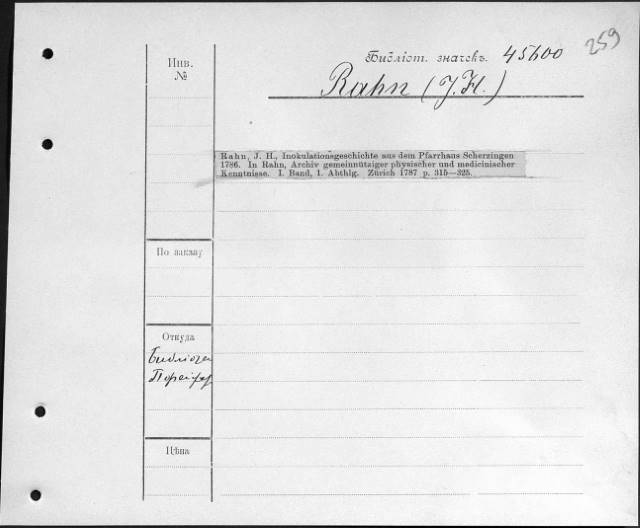 259
Инв.
№
Библіот. значекъ. 45600
Rahn (J. H.)
Rahn, J. H., Inokulationsgeschichte aus dem Pfarrhaus Scherzingen
1786. In Rahn, Archiv gemeinnütziger physischer und medicinischer
Kenntnisse. I. Band, 1. Abthlg. Zürich 1787 p. 315—325.
По заказу
Откуда
Цѣна